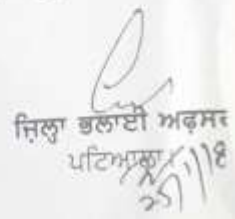 ਜ਼ਿਲ੍ਹਾ ਭਲਾਈ ਅਫ਼ਸਰ
ਪਟਿਆਲਾ